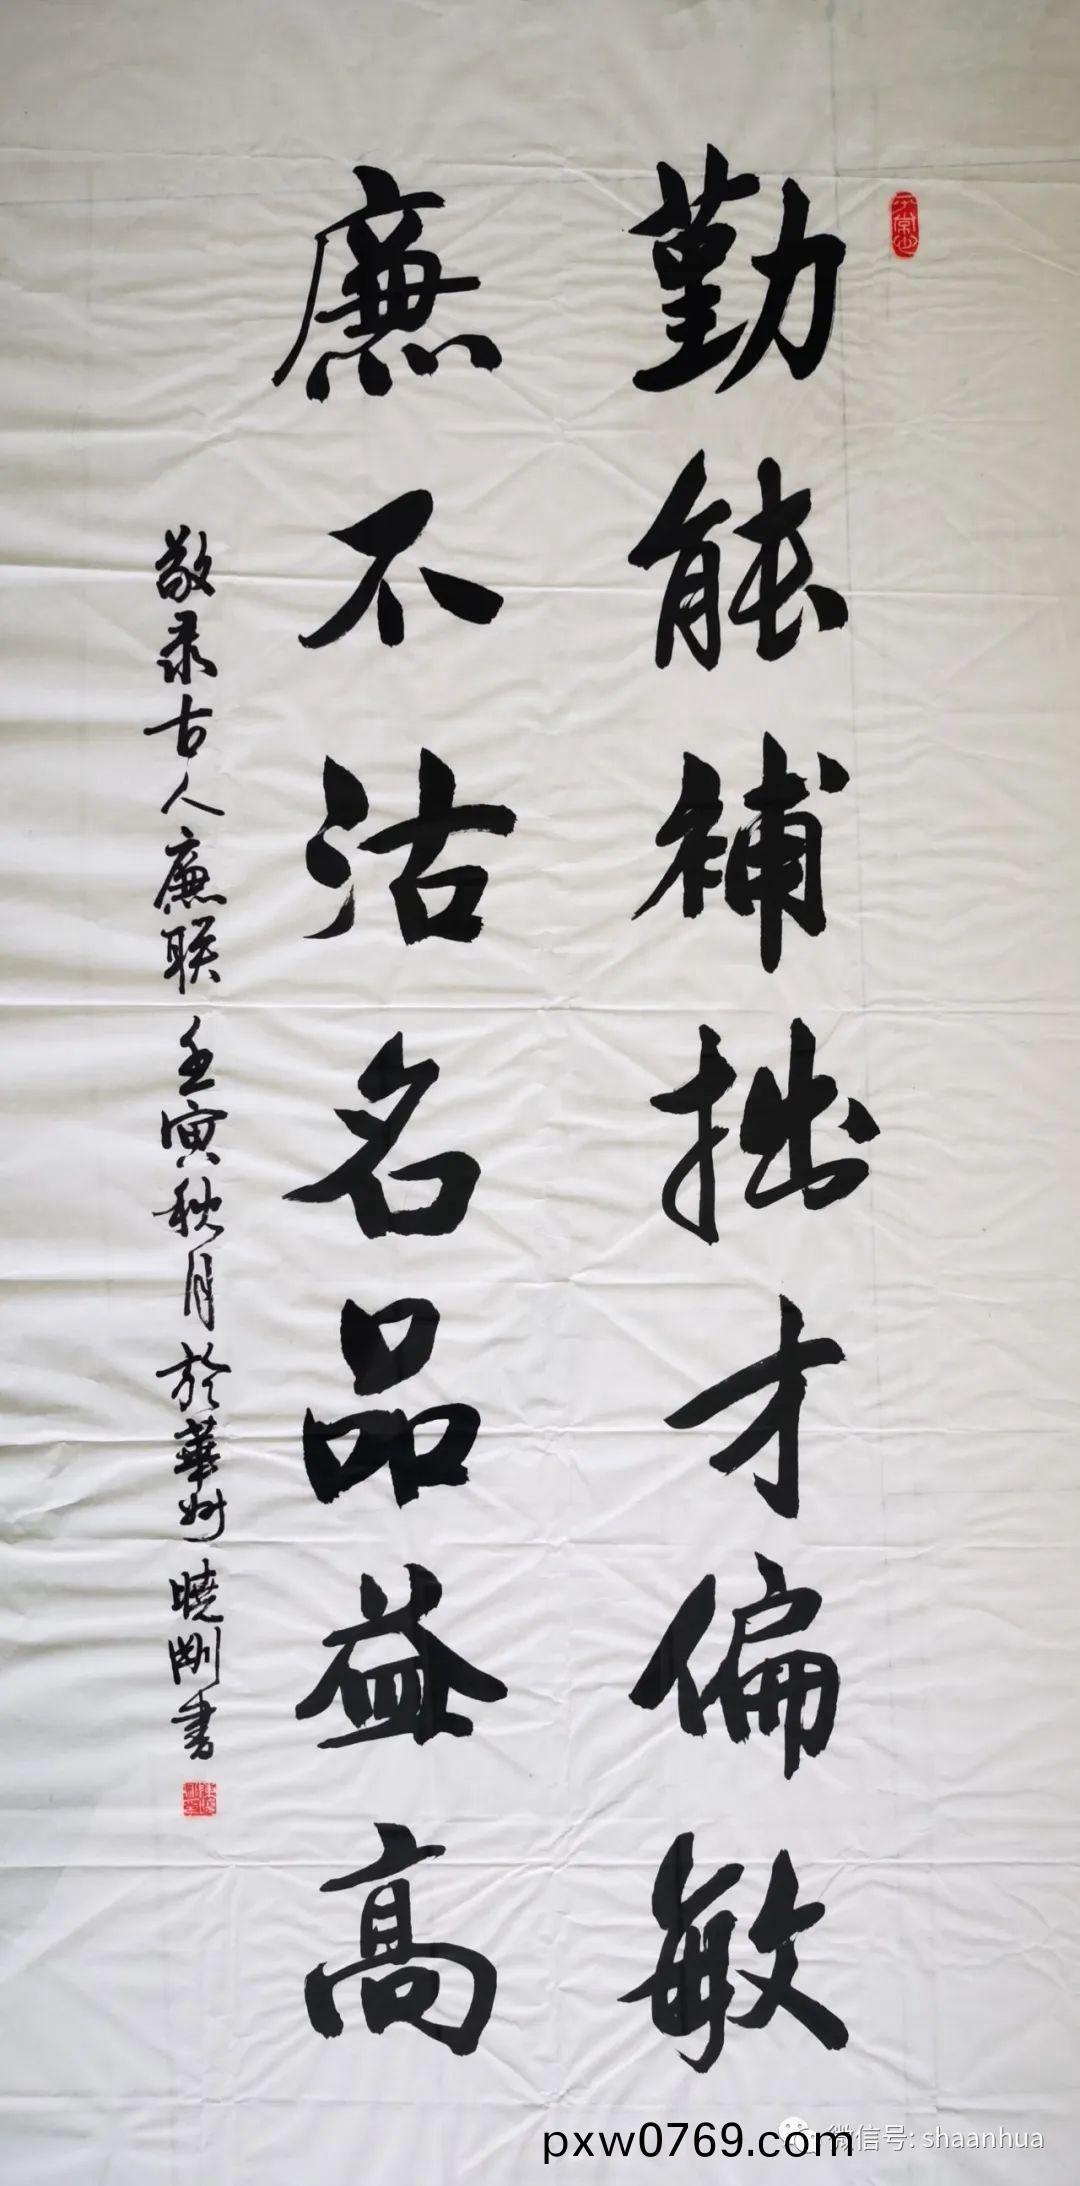 勤能補拙才偏敏
廉不沽名品益高
敬录古人廉联 壬寅秋月於華州 曉剛书
微信号: shaanhua
pxw0769.com